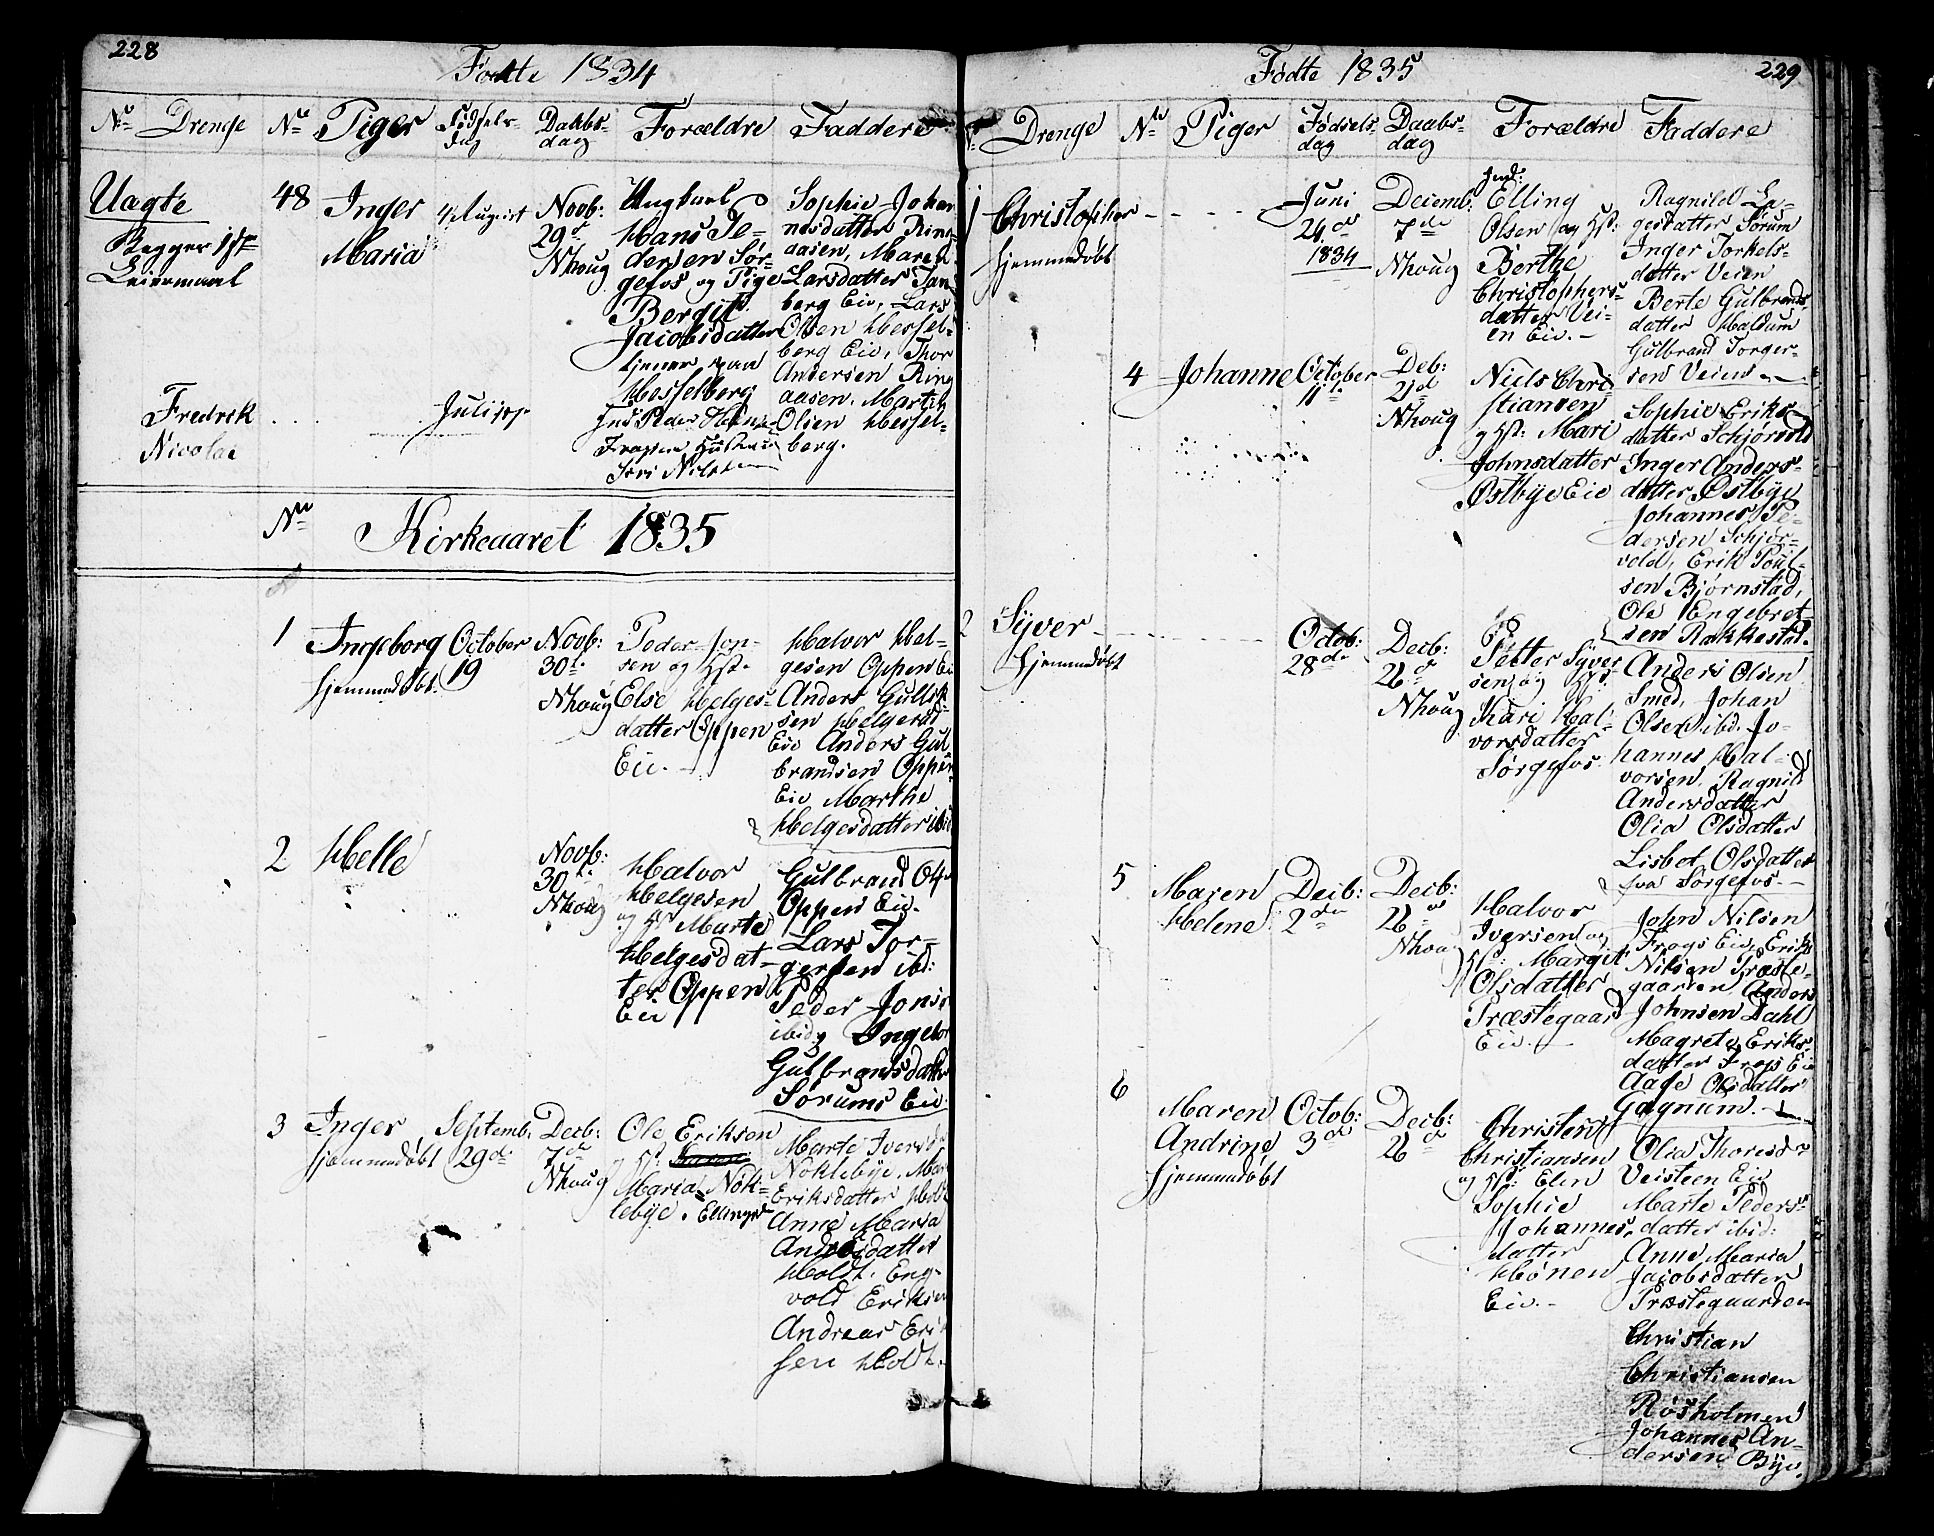 228
Fødte 1834
No Drenge No Piger Fødsels-dag Daabs-dag Forældre Faddere
Uægte
Begges 1ste
Leiermaal
48
Inger
Maria
4 August
Novb:
29de
Nhoug
Ungkarl
Hans Pe-
dersen Sør-
gefos og Pige
Bergit
Jacobsdatter
tjener paa
Hesselberg
Sophie Johan
nesdatter Ring
aasen, Maren
Larsdatter Tan
berg Eie, Lars
Olsen Hessel-
berg Eie, Thor
Andersen Ring
aasen. Martin
Olsen Hessel-
berg.
Fredrik
Nicolai
Juli
Ind. Peder
Nilsen
No Kirkeaaret 1835
1
Ingeborg
hjemmedøbt
October
19
Novb:
30te
Nhoug
Peder Jon-
sen og Hst.
Else Helges-
datter Oppen
Eie.
Halvor Hel-
gesen Oppen Eie
Anders Gulbr
sen Helgerud
Eie Anders Gul
brandsen Oppen
Eie Marthe
Helgesdatter ibid
2
Helle
Novb:
30te
Nhoug
Halvor
Helgesen
og Hst Marte
Helgesdat-
ter Oppen
Eie
Gulbrand
Oppen Eie.
Lars Tor-
gersen ibd:
Peder Jons
ibid Ingebor
Gulbrandsdatter
Sørums Eie
3
Inger
hjemmedøbt
Septemb:
29de
Decb:
7de
Nhoug
Ole Eriksen
og Hst
Maria Nok-
lebye. Ellingsd
Marte Iversd
Noklebye. Mar
Eriksdatter Hol
Anne Maria
Andersdatter
Holdt. Eng-
vold Eriksen
Andreas Eri
sen Holdt.
229
Fødte 1835
No Drenge No Piger Fødsels-dag Daabs-dag Forældre Faddere
1
Christopher
hjemmedøbt
Juni
24de
1834
Decemb:
7de
Nhoug
Ind:
Elling
Olsen og Hst:
Berthe
Christophers-
datter Vei-
en Eie.
Ragnild La-
gesdatter Sørum
Inger Torkels-
datter Veien
Berte Gulbrands
datter Haldum
Gulbrand Torger-
sen Veien
4
Johanne
October
11te
Decb:
21de
Nhoug
Niels Chri
stiansen
og Hst: Mari
Johnsdatter
Østbye Eie
Sophie Eriks
datter Schjørvold
Inger Anders-
datter Østbye
Johannes Pe-
dersen Schjør-
vold, Erik Poul-
sen Bjørnstad,
Ole Engebret
sen Rakkestad.
2
Syver
hjemmedøbt
Octob:
28de
Decb:
26de
Nhoug
Petter Syver
sen og Hst:
Kari Hal-
vorsdatter
Sørgefos.
Anders Olsen
Smed, Johan
Olsen ibd. Jo-
hannes Hal-
vorsen. Ragnild
Andersdatter
Olia Olsdatter
Lisbet Olsdatter
fra Sørgefos.
5
Maren
Helene
Decb:
2de
Decb:
26de
Nhoug
Halvor
Iversen og
Hst: Margit
Olsdatter
Præstegaard
Eie.
John Nilsen
Frogs Eie, Erik
Nilsen Præste-
gaarden, Anders
Johnsen Dahl
Magrete Eriks
datter Frogs Eie
Aase Olsdatter
Gagnum.
6
Maren
Andrine
hjemmedøbt
Octob:
3de
Decb:
26de
Christen
Christiansen
og Hst: Elen
Sophie
Johannes
datter
Hønen
Eie.
Olia Thoresd
Veisteen Eie
Marte Peders-
datter ibid:
Anne Maria
Jacobsdatter
Præstegaarden
Christian
Christiansen
Røsholmen
Johannes An-
dersen Bye.